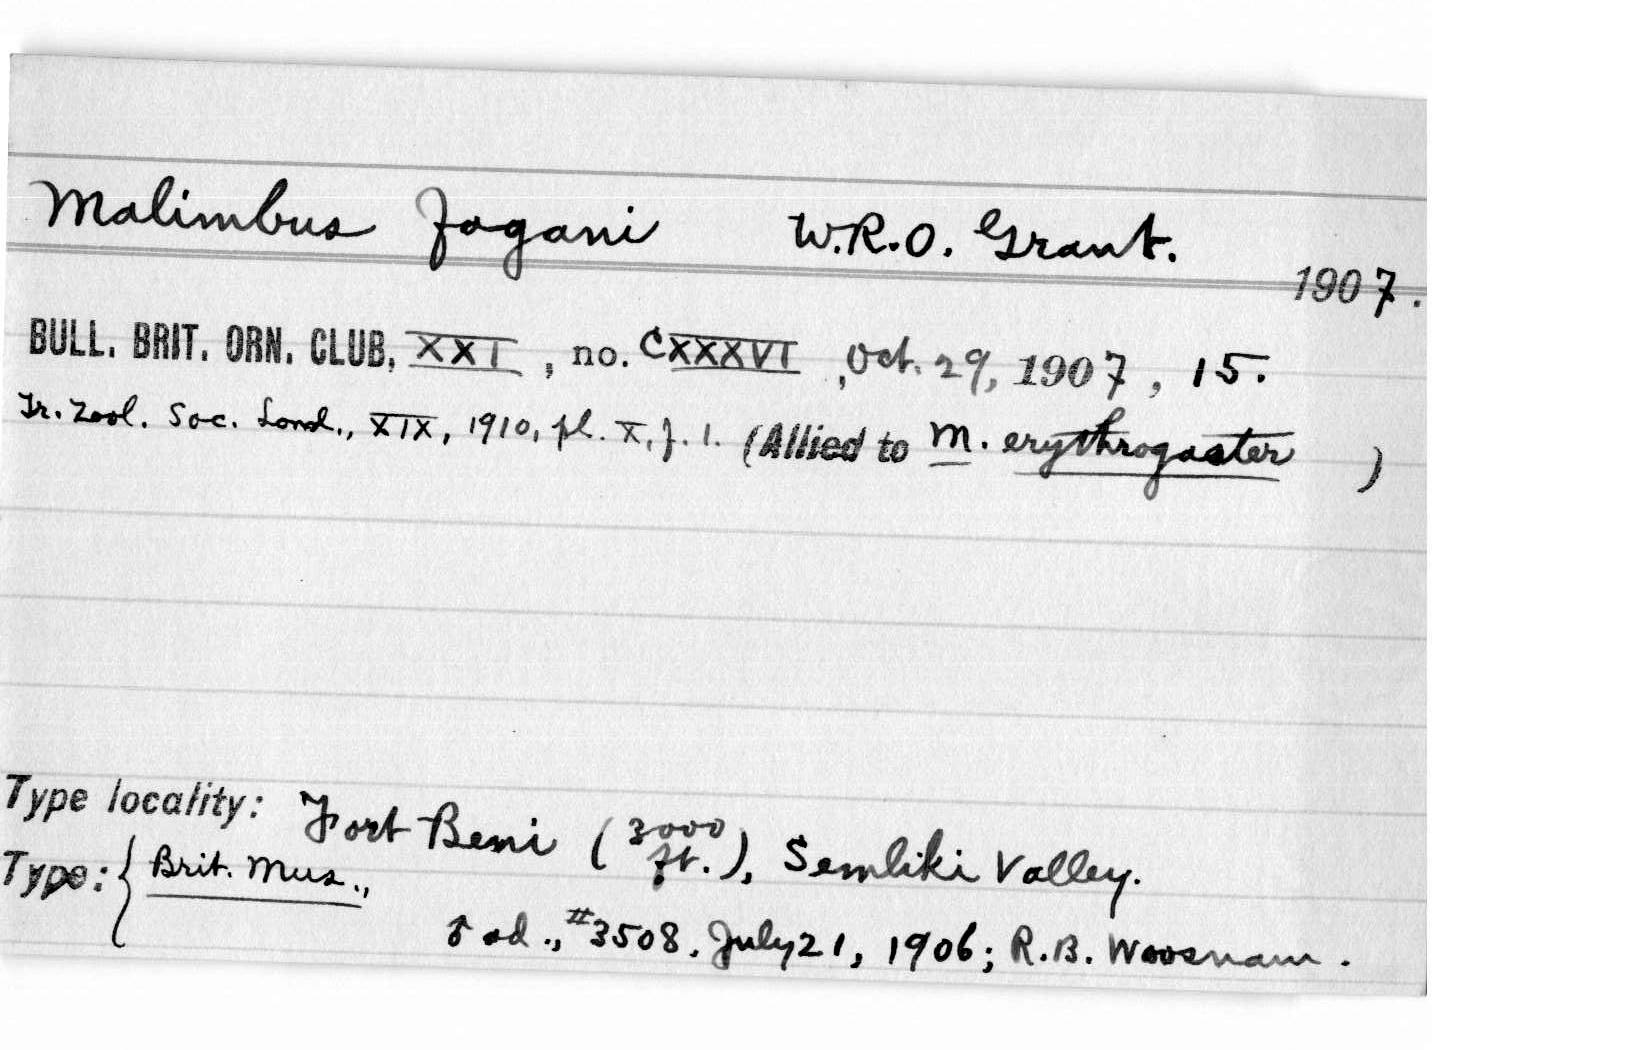 Malimbus fagani W.R.O. Grant.
1907.
BULL. BRIT. ORN. CLUB, XXI, no. CXXXVI, Oct. 29, 1907, 15.
Tr. Zool. Soc. Lond., XIX, 1910, pl. X, f. 1. (Allied to M. erythrogaster )
Type locality: Fort Beni (3000 ft.), Semliki Valley.
Type: { Brit. Mus.,
♂ ad., #3508, July 21, 1906; R.B. Woosnam.